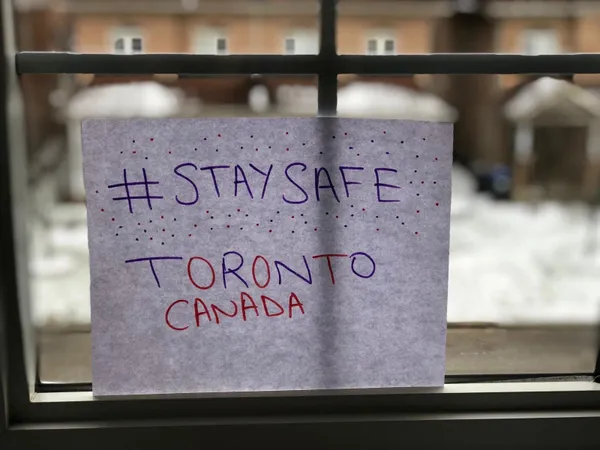 #STAYSAFE
TORONTO
CANADA